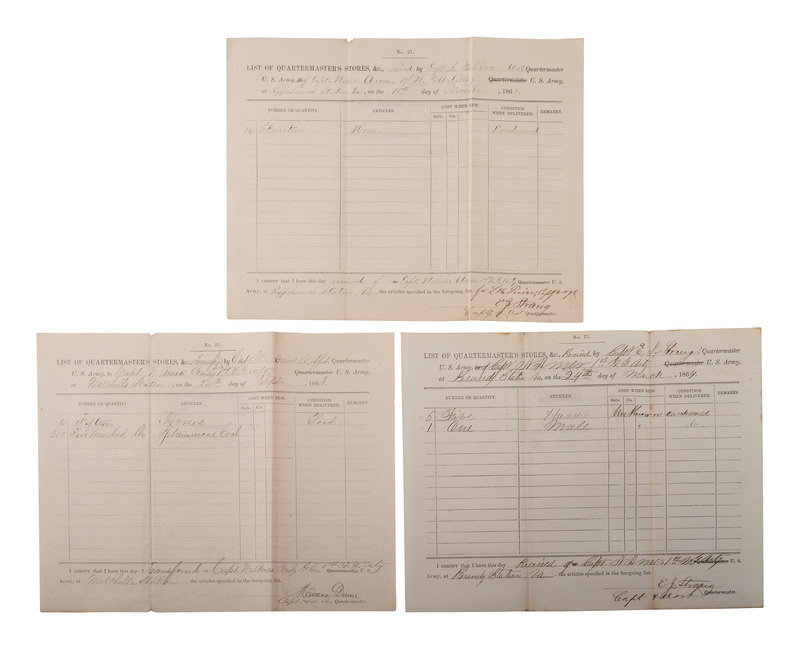 No. 27.
LIST OF QUARTERMASTER'S STORES, &c., received by Capt. Quartermaster
U. S. Army, of Capt. Nelson Ames, 1st Quartermaster U. S. Army,
at Rappahannock Station Va., on the 18th day of November, 186
NUMBER OR QUANTITY. ARTICLES. COST WHEN NEW. CONDITION WHEN DELIVERED. REMARKS.
Dolls. Cts.
14 Fourteen Horses Condemned
I CERTIFY that I have this day received of Capt. Nelson Ames Quartermaster U. S.
Army, at Rappahannock Station, Va the articles specified in the foregoing list.
E. J. Strang
Capt & Asst Quartermaster.
No. 27.
LIST OF QUARTERMASTER'S STORES, &c., by Quartermaster
U. S. Army, to Capt. N. Ames Quartermaster U. S. Army,
at Mitchells Station, on the day of Sept., 186
NUMBER OR QUANTITY. ARTICLES. COST WHEN NEW. CONDITION WHEN DELIVERED. REMARKS.
Dolls. Cts.
Horses Good
Coal
I CERTIFY that I have this day Transferred to Capt N. Ames Quartermaster U. S.
Army, at Mitchells Station, the articles specified in the foregoing list.
Quartermaster.
No. 27.
LIST OF QUARTERMASTER'S STORES, &c., Received by Capt E. J. Strang Quartermaster
U. S. Army, of Capt N. Ames Quartermaster U. S. Army,
at Brandy Station Va. on the 29th day of March, 1864.
NUMBER OR QUANTITY. ARTICLES. COST WHEN NEW. CONDITION WHEN DELIVERED. REMARKS.
Dolls. Cts.
5 Five Horses Unknown condemned
1 One Mule " do
I CERTIFY that I have this day Received of Capt N. Ames 1st U. S.
Army, at Brandy Station Va, the articles specified in the foregoing list.
E. J. Strang
Capt & Asst Quartermaster.